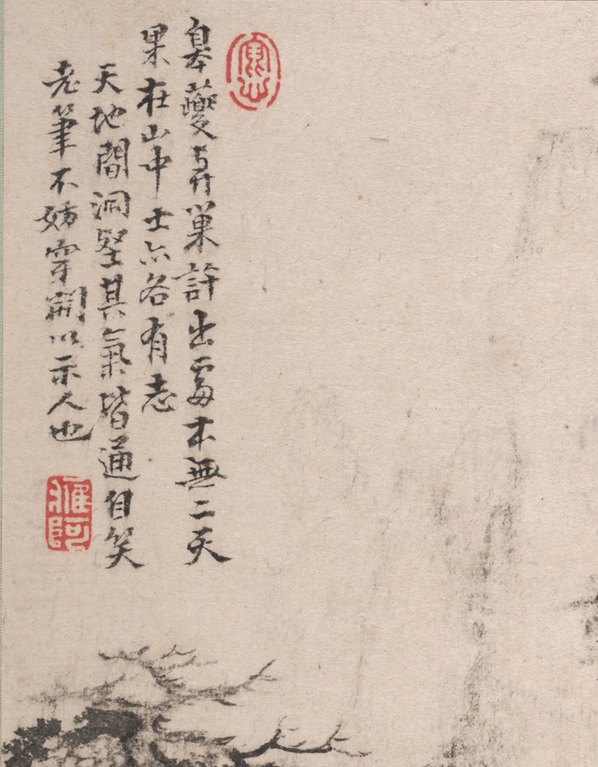 皋夔與巢許出處本無二天
果在山中士亦各有志
天地間洞壑其氣皆通自笑
老筆不妨穿開以示人也